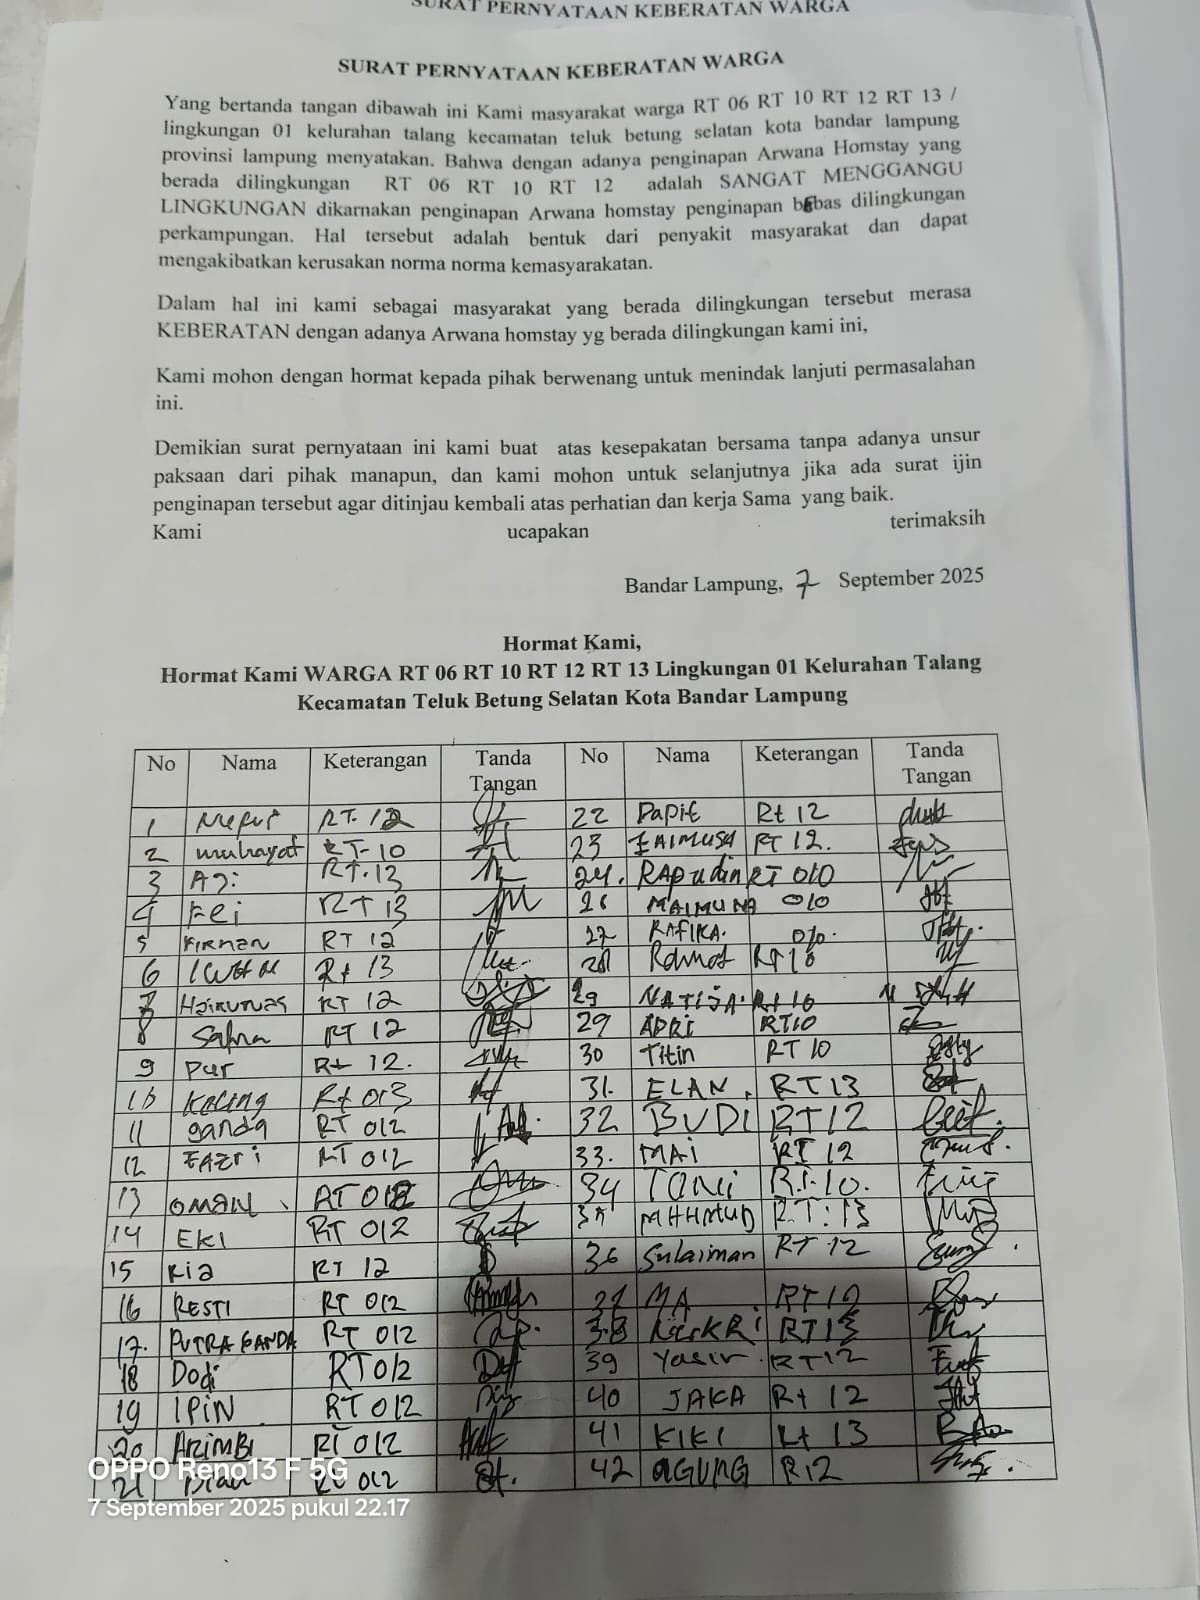 SURAT PERNYATAAN KEBERATAN WARGA
SURAT PERNYATAAN KEBERATAN WARGA
Yang bertanda tangan dibawah ini Kami masyarakat warga RT 06 RT 10 RT 12 RT 13 /
lingkungan 01 kelurahan talang kecamatan teluk betung selatan kota bandar lampung
provinsi lampung menyatakan. Bahwa dengan adanya penginapan Arwana Homstay yang
berada dilingkungan RT 06 RT 10 RT 12 adalah SANGAT MENGGANGU
LINGKUNGAN dikarnakan penginapan Arwana homstay penginapan bebas dilingkungan
perkampungan. Hal tersebut adalah bentuk dari penyakit masyarakat dan dapat
mengakibatkan kerusakan norma norma kemasyarakatan.
Dalam hal ini kami sebagai masyarakat yang berada dilingkungan tersebut merasa
KEBERATAN dengan adanya Arwana homstay yg berada dilingkungan kami ini,
Kami mohon dengan hormat kepada pihak berwenang untuk menindak lanjuti permasalahan
ini.
Demikian surat pernyataan ini kami buat atas kesepakatan bersama tanpa adanya unsur
paksaan dari pihak manapun, dan kami mohon untuk selanjutnya jika ada surat ijin
penginapan tersebut agar ditinjau kembali atas perhatian dan kerja Sama yang baik.
Kami ucapakan terimaksih
Bandar Lampung, 7 September 2025
Hormat Kami,
Hormat Kami WARGA RT 06 RT 10 RT 12 RT 13 Lingkungan 01 Kelurahan Talang
Kecamatan Teluk Betung Selatan Kota Bandar Lampung
No Nama Keterangan Tanda Tangan No Nama Keterangan Tanda Tangan
1 RT. 12 22 Papit Rt 12
2 muhayat RT-10 23 ZAIMUSA RT 12.
3 Aji RT.13 24. RAPUdin RT 010
4 Fei RT 13 26 MAIMUNA 010
5 FIRMAN RT 12 27 RAFIKA. 010.
6 IWAN Rt 13 28 Rahmat
7 Hairunnas RT 12 29 NATIJA. Rt 10
8 Sahra RT 12 29 ADRI RT10
9 pur Rt 12. 30 Titin RT 10
10 Rt 013 31. ELAN. RT 13
11 ganda RT 012 32 BUDI RT12
12 FAZRI RT 012 33. MAI RT 12
13 OMAN RT 012 34 TONI RT-10.
14 EKI RT 012 RT:13
15 Ria RT 12 36 Sulaiman RT 12
16 RESTI RT 012 37 MA RT12
17. PUTRA GANDA RT 012 38 RT13
18 Dodi RT012 39 Yasir RT12
19 IPIN RT 012 40 JAKA Rt 12
20 ARIMBI RT 012 41 KIKI Rt 13
21 Dian RT 012 42 AGUNG R12
OPPO Reno13 F 5G
7 September 2025 pukul 22.17